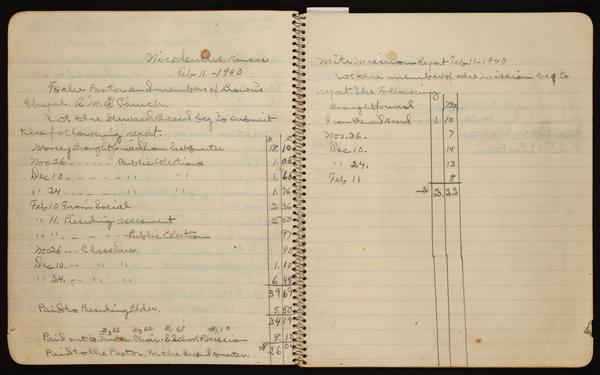 Nicodemus, Kansas
Feb 11. - 1940
To the Pastor and members of Brown's
Chapel A.M.E Church.
We the Steward Board beg to submit
the following report.
Money Brought forward from last quarter 18.10
Nov. 26. - - - - Public Colection 1.05
Dec 10 - - - - - " " 1.66
" 24 - - - - - " " 1.76
Feb 10 From Social 2.36
" 11. Presiding assesment 5.50
" " - - - - Public Colection 97
Nov 26 - - Class Dues 90
Dec 10. - - " " 1.10
" 24. - - " " 6.45
39 69
Paid to Presiding Elder. 5.50
34 19
Paid out to School Mission 8.10
Paid to the Pastor, for the Second quarter. 26
Mite Mission Report Feb 11 - 1940
We the members of the Mission beg to
report the Following
Brought forward 73
From Steward Board 1.10
Nov. 26 - 7
Dec 10. 14
" 24. 13
Feb 11 8